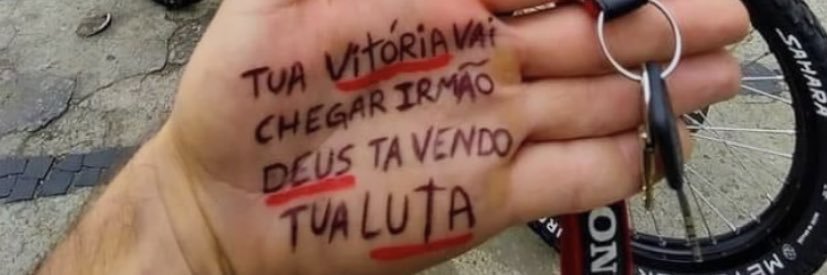 TUA VITÓRIA VAI
CHEGAR IRMÃO
DEUS TA VENDO
TUA LUTA
SAHARA
ON